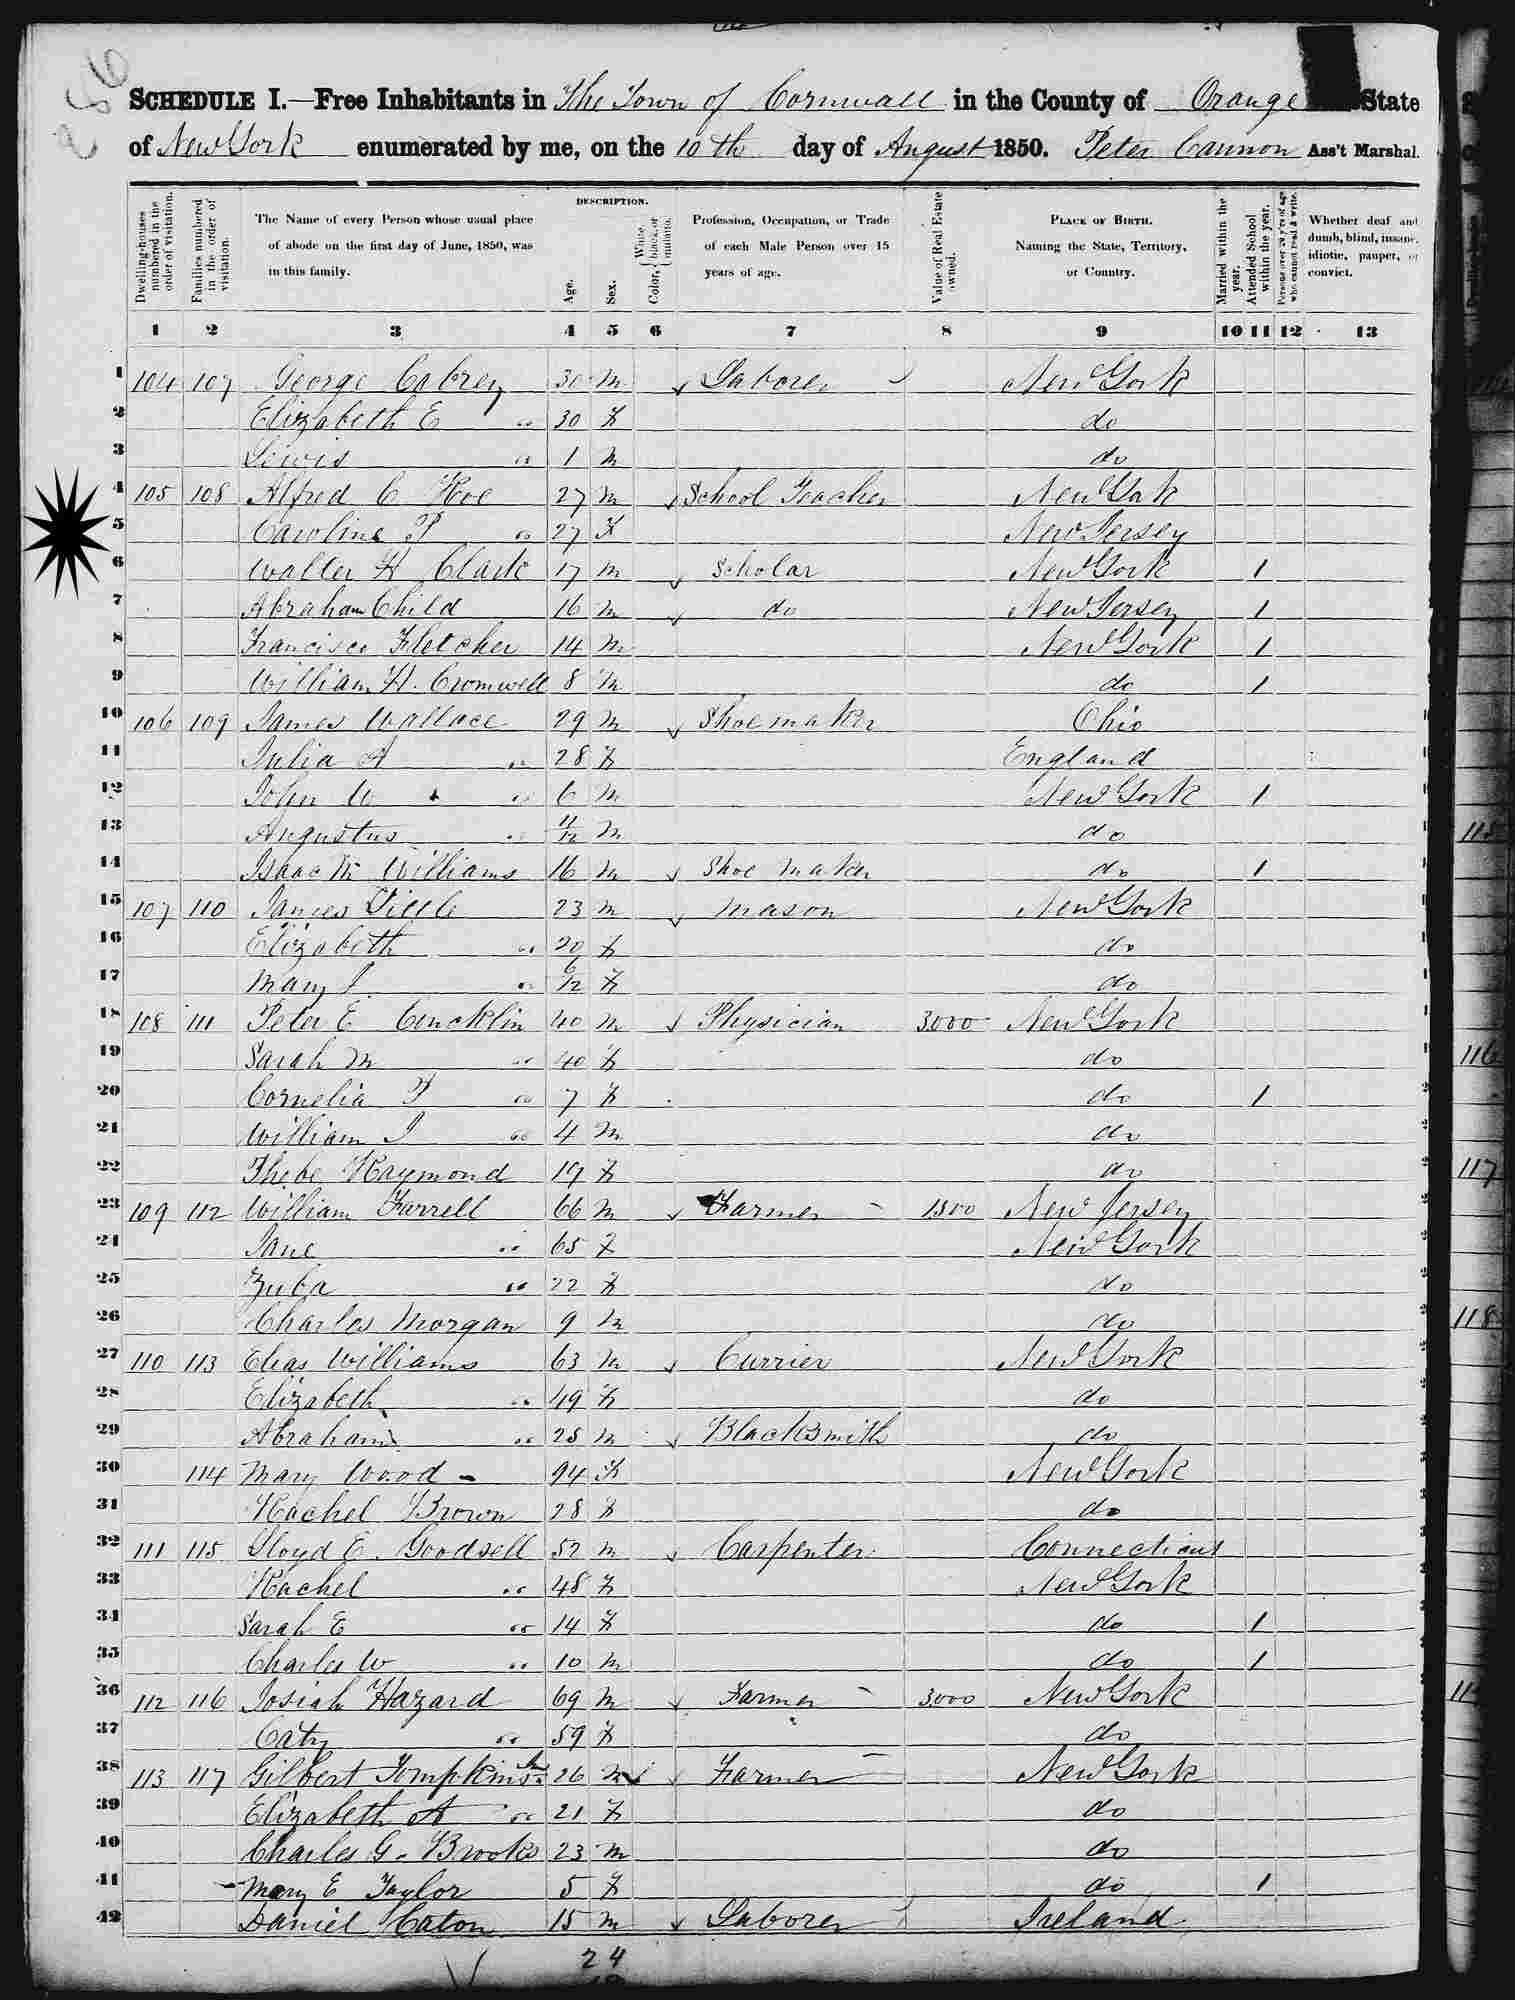 256
SCHEDULE I.—Free Inhabitants in The Town of Cornwall in the County of Orange State
of New York enumerated by me, on the 10th day of August 1850. Peter Cannon Ass't Marshal.
Dwelling-houses numbered in the order of visitation.
Families numbered in the order of visitation.
The Name of every Person whose usual place of abode on the first day of June, 1850, was in this family.
DESCRIPTION.
Age.
Sex.
Color, White, black, or mulatto.
Profession, Occupation, or Trade of each Male Person over 15 years of age.
Value of Real Estate owned.
PLACE OF BIRTH. Naming the State, Territory, or Country.
Married within the year.
Attended School within the year.
Persons over 20 y'rs of age who cannot read & write.
Whether deaf and dumb, blind, insane, idiotic, pauper, or convict.
1 2 3 4 5 6 7 8 9 10 11 12 13
1 104 107 George 30 M Laborer New York
2 Elizabeth E " 30 F do
3 Lewis " 1 M do
4 105 108 Alfred C Roe 27 M School Teacher New York
5 Caroline P " 27 F New Jersey
6 Walter H Clark 17 M Scholar New York 1
7 Abraham Child 16 M do New Jersey 1
8 Francisco Fletcher 14 M New York 1
9 William H. Cromwell 8 M do 1
10 106 109 James Wallace 29 M Shoemaker Ohio
11 Julia A " 28 F England
12 John W " 6 M New York 1
13 Augustus " 11/12 M do
14 Isaac M Williams 16 M Shoe maker do 1
15 107 110 James 23 M Mason New York
16 Elizabeth " 20 F do
17 Mary J " 6/12 F do
18 108 111 Peter E Concklin 40 M Physician 3000 New York
19 Sarah M " 40 F do
20 Cornelia P " 7 F do 1
21 William J " 4 M do
22 Phebe Raymond 19 F do
23 109 112 William Furrell 66 M Farmer 1500 New Jersey
24 Jane " 65 F New York
25 Zuba " 22 F do
26 Charles Morgan 9 M do
27 110 113 Elias Williams 63 M Currier New York
28 Elizabeth " 49 F do
29 Abraham " 25 M Blacksmith do
30 114 Mary Wood 94 F New York
31 Rachel Brown 28 F do
32 111 115 Lloyd E. Goodsell 52 M Carpenter Connecticut
33 Rachel " 48 F New York
34 Sarah E " 14 F do 1
35 Charles W " 10 M do 1
36 112 116 Josiah Hazard 69 M Farmer 3000 New York
37 Caty " 59 F do
38 113 117 Gilbert Tompkins Jr 26 M Farmer New York
39 Elizabeth A " 21 F do
40 Charles G. Brooks 23 M do
41 Mary E Taylor 5 F do 1
42 Daniel Caton 15 M Laborer Ireland
24
115
116
117
118